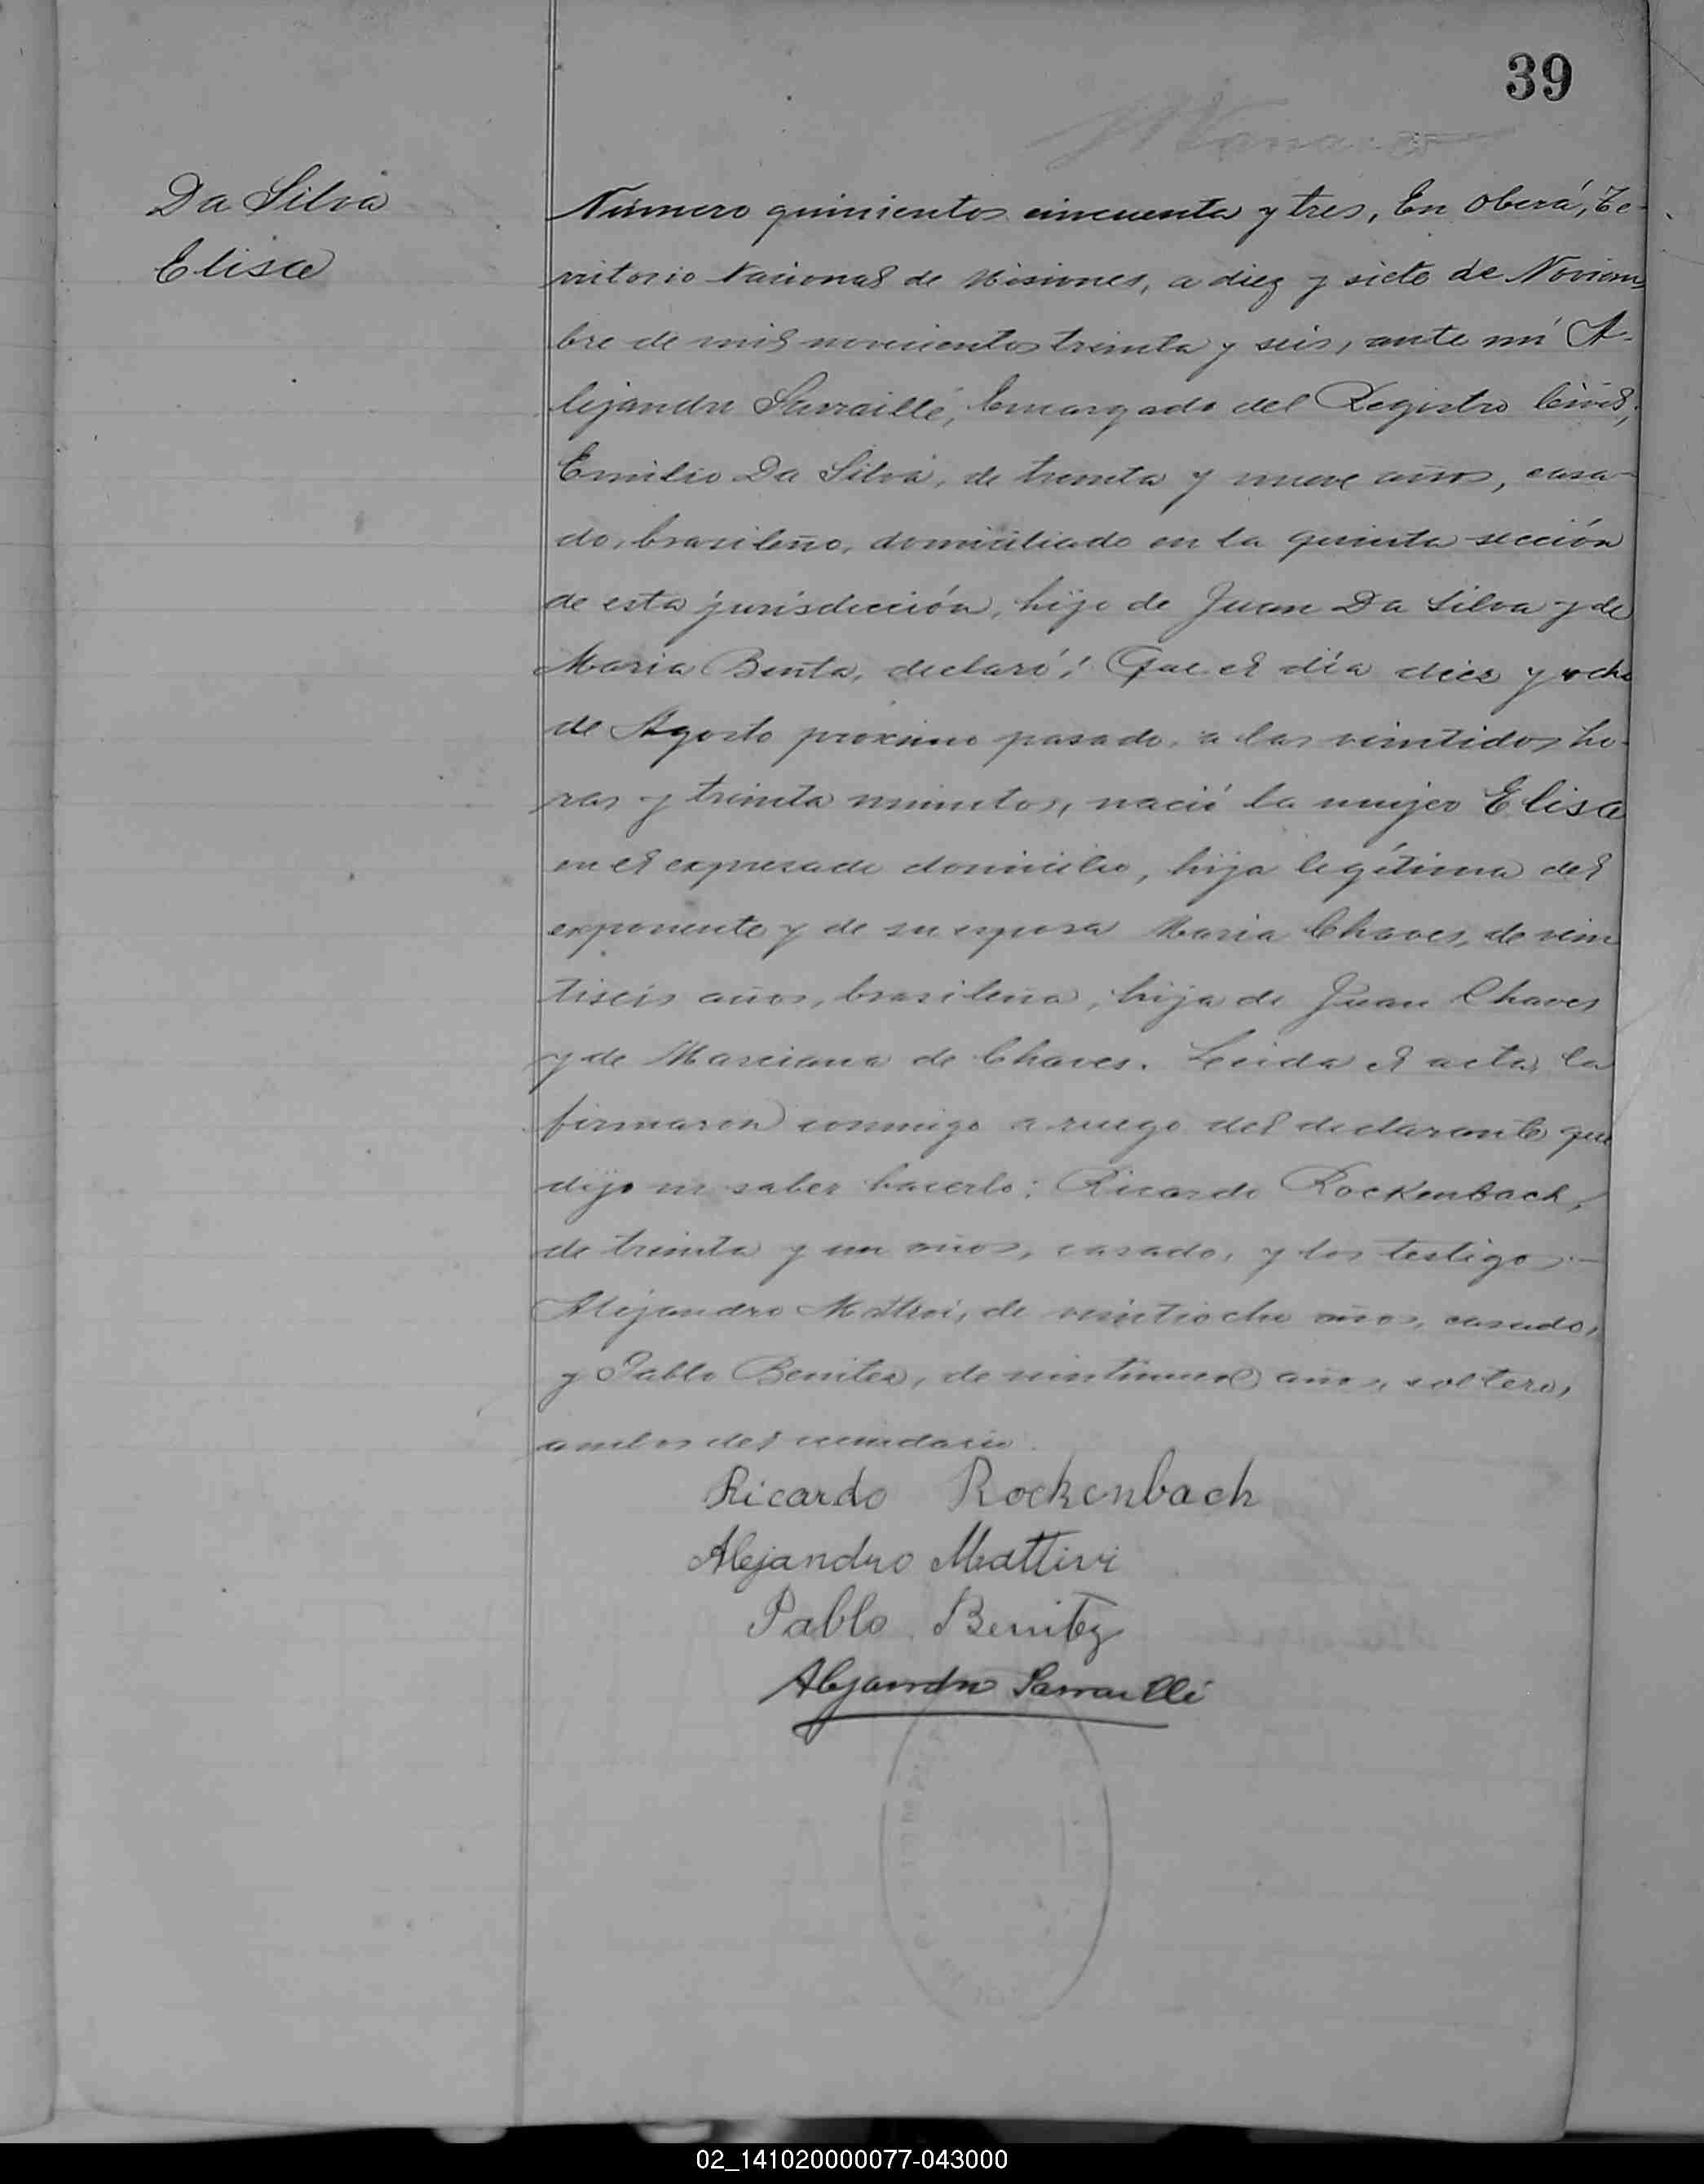 39
Da Silva
Elisa
Número quinientos cincuenta y tres, En Oberá, Te-
rritorio Nacional de Misiones, a diez y siete de Noviem
bre de mil novecientos treinta y seis, ante mí A-
lejandro Sarraillé, Encargado del Registro Civil,
Emilio Da Silva, de treinta y nueve años, casa-
do, brasileño, domiciliado en la quinta sección
de esta jurisdicción, hijo de Juan Da Silva y de
Maria Benta, declaró: Que el día diez y ocho
de Agosto próximo pasado, a las veintidos ho-
ras y treinta minutos, nació la mujer Elisa
en el expresado domicilio, hija legítima del
exponente y de su esposa Maria Chaves, de vein
tiseis años, brasileña, hija de Juan Chaves
y de Marciana de Chaves. Leida el acta, la
firmaron conmigo a ruego del declarante que
dijo no saber hacerlo: Ricardo Rockenbach,
de treinta y un años, casado, y los testigos:-
Alejandro Mattivi, de veintiocho años, casado,
y Pablo Benitez, de veintinueve años, soltero,
ambos del vecindario.
Ricardo Rockenbach
Alejandro Mattivi
Pablo Benitez
Alejandro Sarraillé
02_141020000077-043000